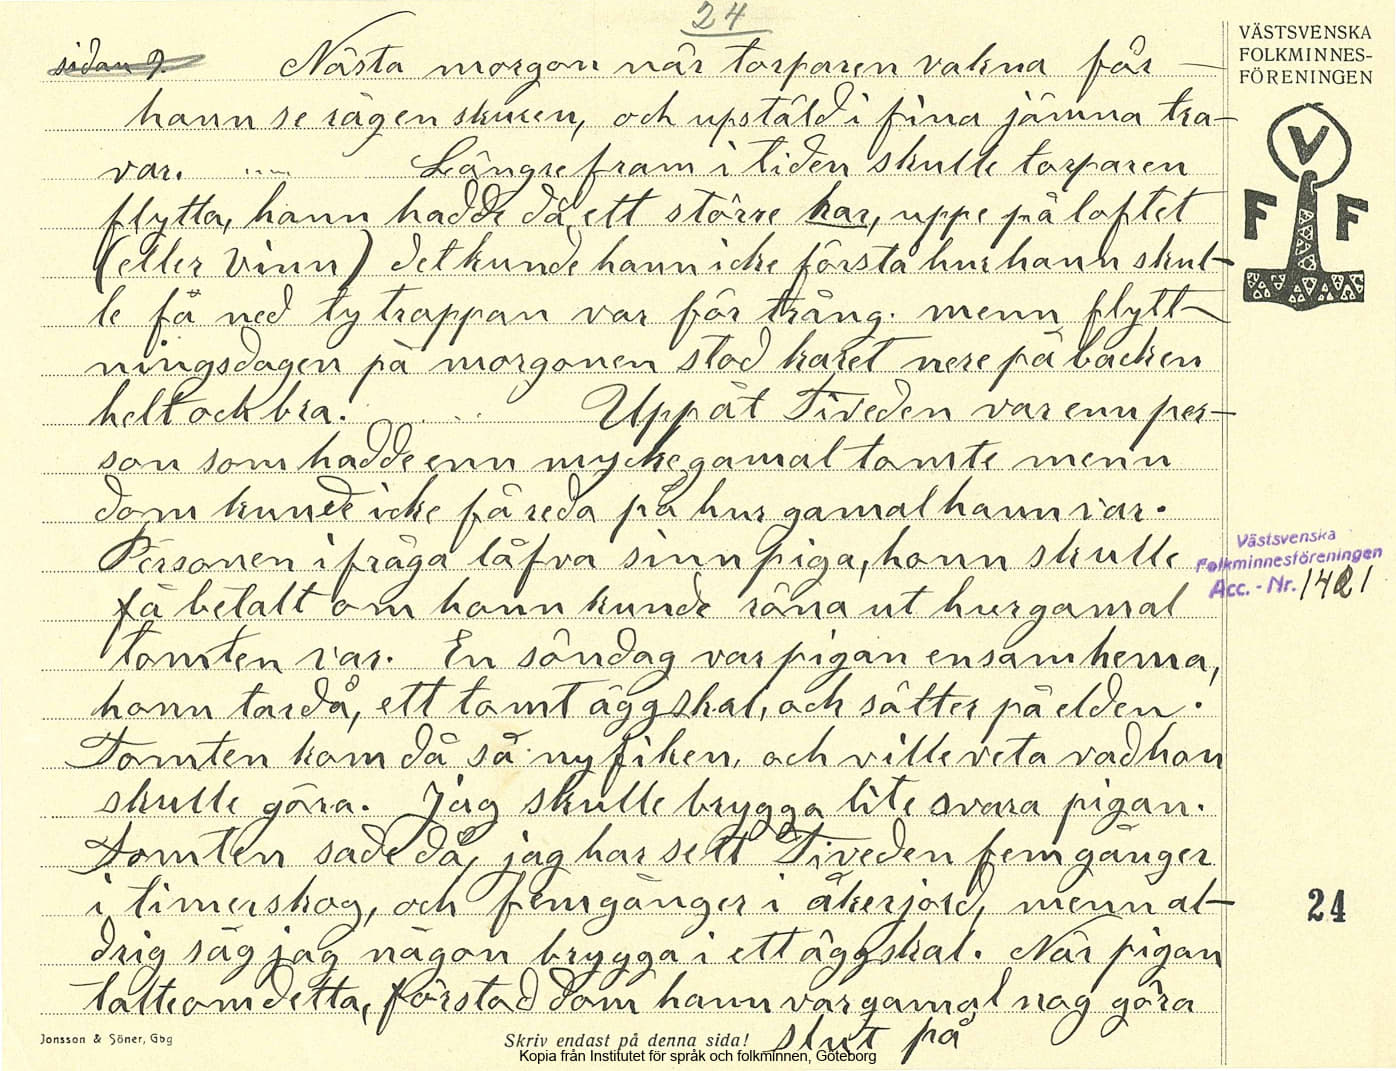 24
sidan 9. Nästa morgon när torparen vakna får
hann se rågen skuren, och upstäld i fina jämna tra-
var. Längre fram i tiden skulle torparen
flytta, hann hadde då ett större kar, uppe på loftet
(eller vinn) det kunde hann icke förstå hur hann skul-
le få ned ty trappan var för trång. menn flytt-
ningsdagen på morgonen stod karet nere på backen
helt ock bra. Uppåt Tiveden var enn per-
son som hadde enn mycke gamal tomte menn
dom kunde icke få reda på hur gamal hann var.
Personen ifråga låfva sinn piga, honn skulle
få betalt om honn kunde röna ut hur gamal
tomten var. En söndag var pigan ensam hema,
honn tar då, ett tomt äggskal, och sätter på elden.
Tomten kom då så nyfiken, och ville veta vad hon
skulle göra. Jag skulle brygga lite svara pigan.
Tomten sade då, jag har sett Tiveden fem gånger
i timerskog, och femgånger i åkerjord, menn al-
drig såg jag någon brygga i ett äggskal. När pigan
talte om detta, förstod dom hann var gamal nog göra
slut på
VÄSTSVENSKA
FOLKMINNES-
FÖRENINGEN
V
F F
Västsvenska
Folkminnesföreningen
Acc. - Nr. 1421
24
Jonsson & Söner, Gbg
Skriv endast på denna sida!
Kopia från Institutet för språk och folkminnen, Göteborg